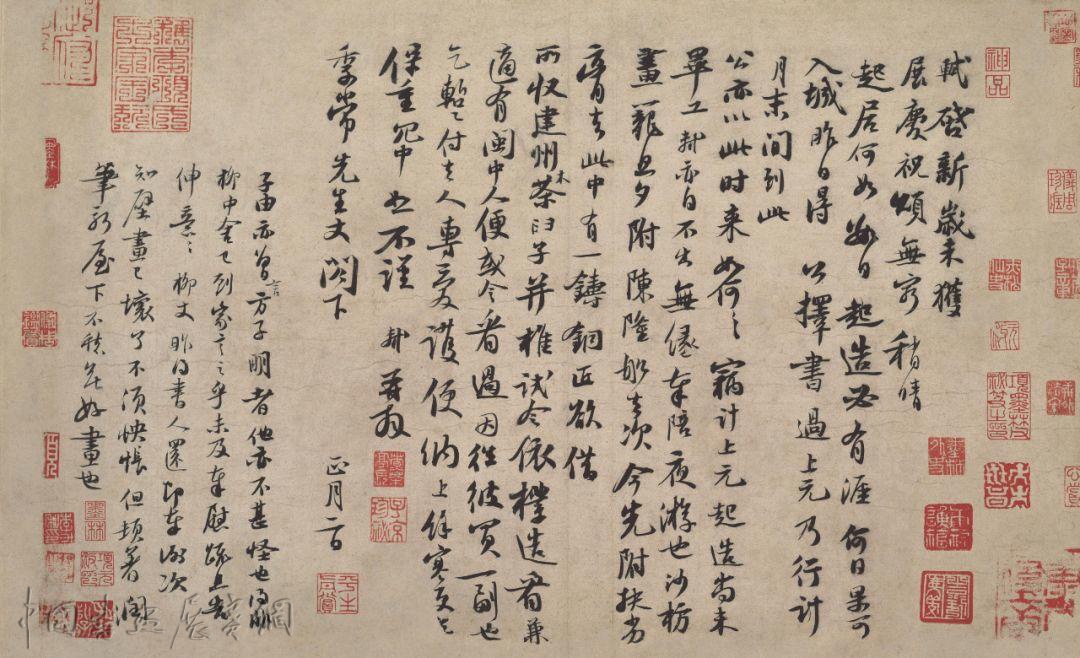 軾啓新歲未獲
展慶祝頌無窮稍晴
起居何如數日起造必有涯何日果可
入城昨日得公擇書過上元乃行計
月末間到此
公亦以此時來如何〻竊計上元起造尚未
畢工軾亦自不出無緣奉陪夜游也沙枋
畫籠旦夕附陳隆船去次今先附扶劣
膏去此中有一鑄銅匠欲借
所收建州木茶臼子并椎試令依樣造看兼
適有閩中人便或令看過因往彼買一副也
乞暫〻付去人專愛護便納上餘寒更乞
保重冗中恕不謹軾再拜
季常先生丈閣下
正月二日
子由亦曾言方子明者他亦不甚怪也得非
柳中舍已到家言之乎未及奉慰疏且告
伸意〻柳丈昨得書人還即奉謝次
知壁畫已壞了不須怏悵但頓著潤
筆新屋下不愁無好畫也
神品
項墨林父秘笈之印
子京珍秘
墨林
中國書法展賽網